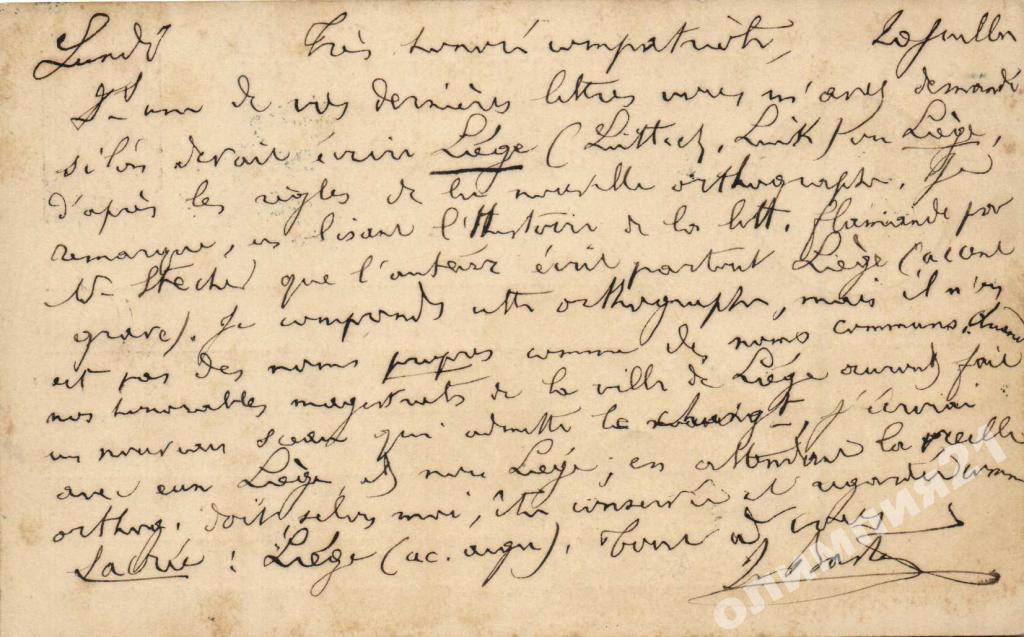 Lundi Très honoré compatriote, 20 Juillet
une de vos dernières lettres vous m'avez demandé
si l'on devait écrire Liége (Lüttich, Luik) ou Liège,
d'après les règles de la nouvelle orthographe. Je
remarque, en lisant l'Histoire de la litt. flamande par
Mr Stecher que l'auteur écrit partout Liège (accent
grave). Je comprends cette orthographe, mais il n'en
est pas des noms propres comme des noms communs. Quand
nos honorables magistrats de la ville de Liége auront fait
un nouveau sceau qui admette le j'écrirai
avec eux Liège et non Liége; en attendant la vieille
orthog. doit, selon moi, être conservée et regardée comme
sacrée : Liége (ac. aigu). Tout à vous
олимпия21